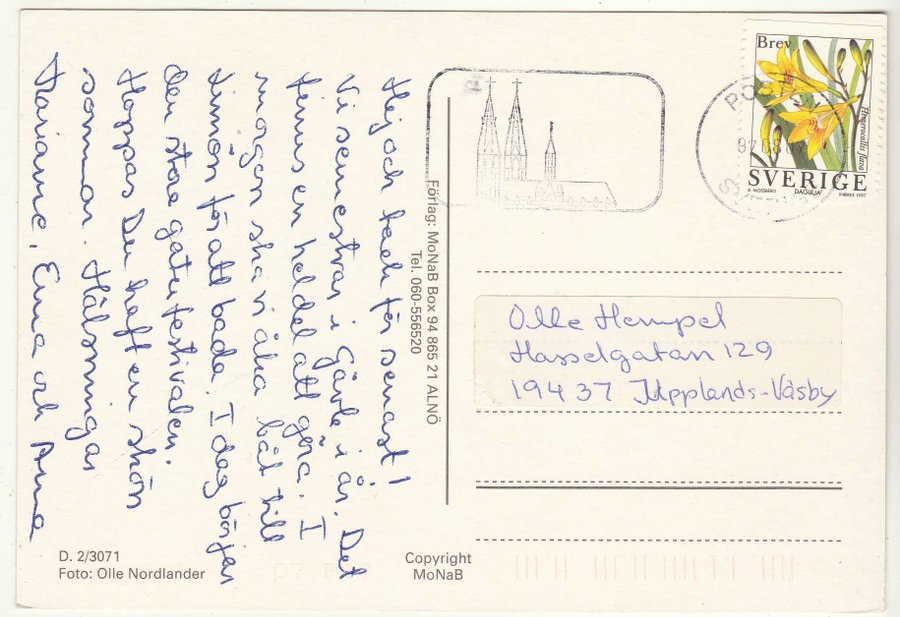 Hej och tack för senast!
Vi semestrar i Gävle i år. Det
finns en hel del att göra. I
morgon ska vi åka båt till
Limön för att bada. I dag börjar
den stora gatufestivalen.
Hoppas Du haft en skön
sommar. Hälsningar
Marianne, Emma och Anna
D. 2/3071
Foto: Olle Nordlander
Förlag: MoNaB Box 94 865 21 ALNÖ
Tel. 060-556520
Copyright
MoNaB
Brev
Hemerocallis flava
SVERIGE
B. MOSSBERG DAGLILJA POSTEN 1997
Olle Hempel
Hasselgatan 129
194 37 Upplands-Väsby